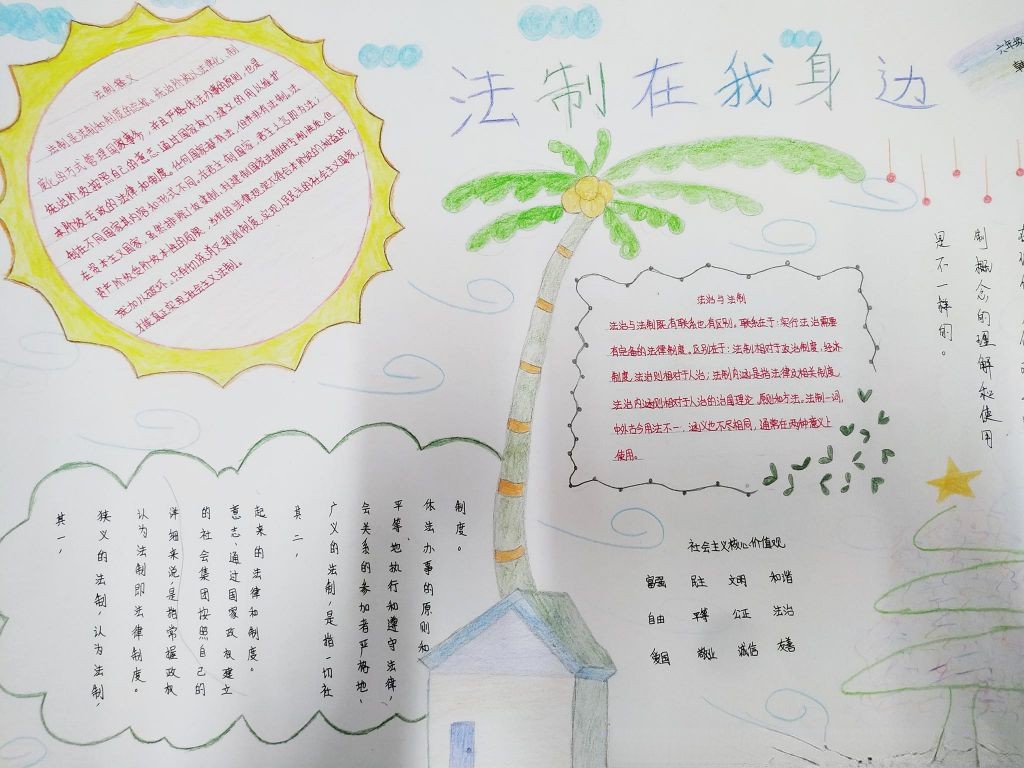 法制在我身边
六年级
法制 释义
法制是法制和制度的总称。统治阶级以法律化、制
度化的方式管理国家事务，并且严格依法办事的原则，也是
统治阶级按照自己的意志通过国家权力建立的用以维护
本阶级专政的法律和制度。任何国家都有法，但并非有法制，法
制在不同国家其内容和形式不同，在君主制国家，君主之言即为法；
在资本主义国家，虽然排除了奴隶制、封建制国家法制的专制流失，但
资产阶级受阶级本性的局限
才能真正实现社会主义法制。
法治与法制
法治与法制既有联系也有区别。联系在于：实行法治需要
有完备的法律制度。区别在于：法制相对于政治制度，经济
制度，法治则相对于人治；法制内涵是指法律及相关制度，
法治内涵则相对于人治的治国理论、原则和方法。法制一词，
中外古今用法不一，涵义也不尽相同，通常在两种意义上
使用。
制概念的理解和使用
是不一样的。
其一，
狭义的法制，认为法制，
认为法制即法律制度。
详细来说，是指掌握政权
的社会集团按照自己的
意志、通过国家政权建立
起来的法律和制度。
其二，
广义的法制，是指一切社
会关系的参加者严格地、
平等地执行和遵守法律，
依法办事的原则和
制度。
社会主义核心价值观
富强 民主 文明 和谐
自由 平等 公正 法治
爱国 敬业 诚信 友善